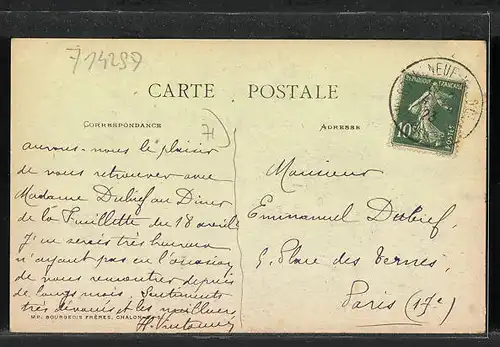 714297
CARTE POSTALE
CORRESPONDANCE
71
ADRESSE
aurons-nous le plaisir
de vous retrouver avec
Madame Dubief au Diner
de la Feuillette du 18 avril
J'en serais très heureux
n'ayant pas eu l'occasion
de vous rencontrer depuis
de longs mois. Sentiments
très dévoués et les meilleurs
Monsieur
Emmanuel Dubief,
5, Place des Ternes,
Paris (17e)
REPUBLIQUE FRANÇAISE
10c
POSTES
NEUF
MP. BOURGEOIS FRÈRES, CHALON